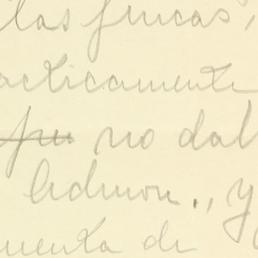 las fincas,
acticamente
no dal
Admon., y
menta de